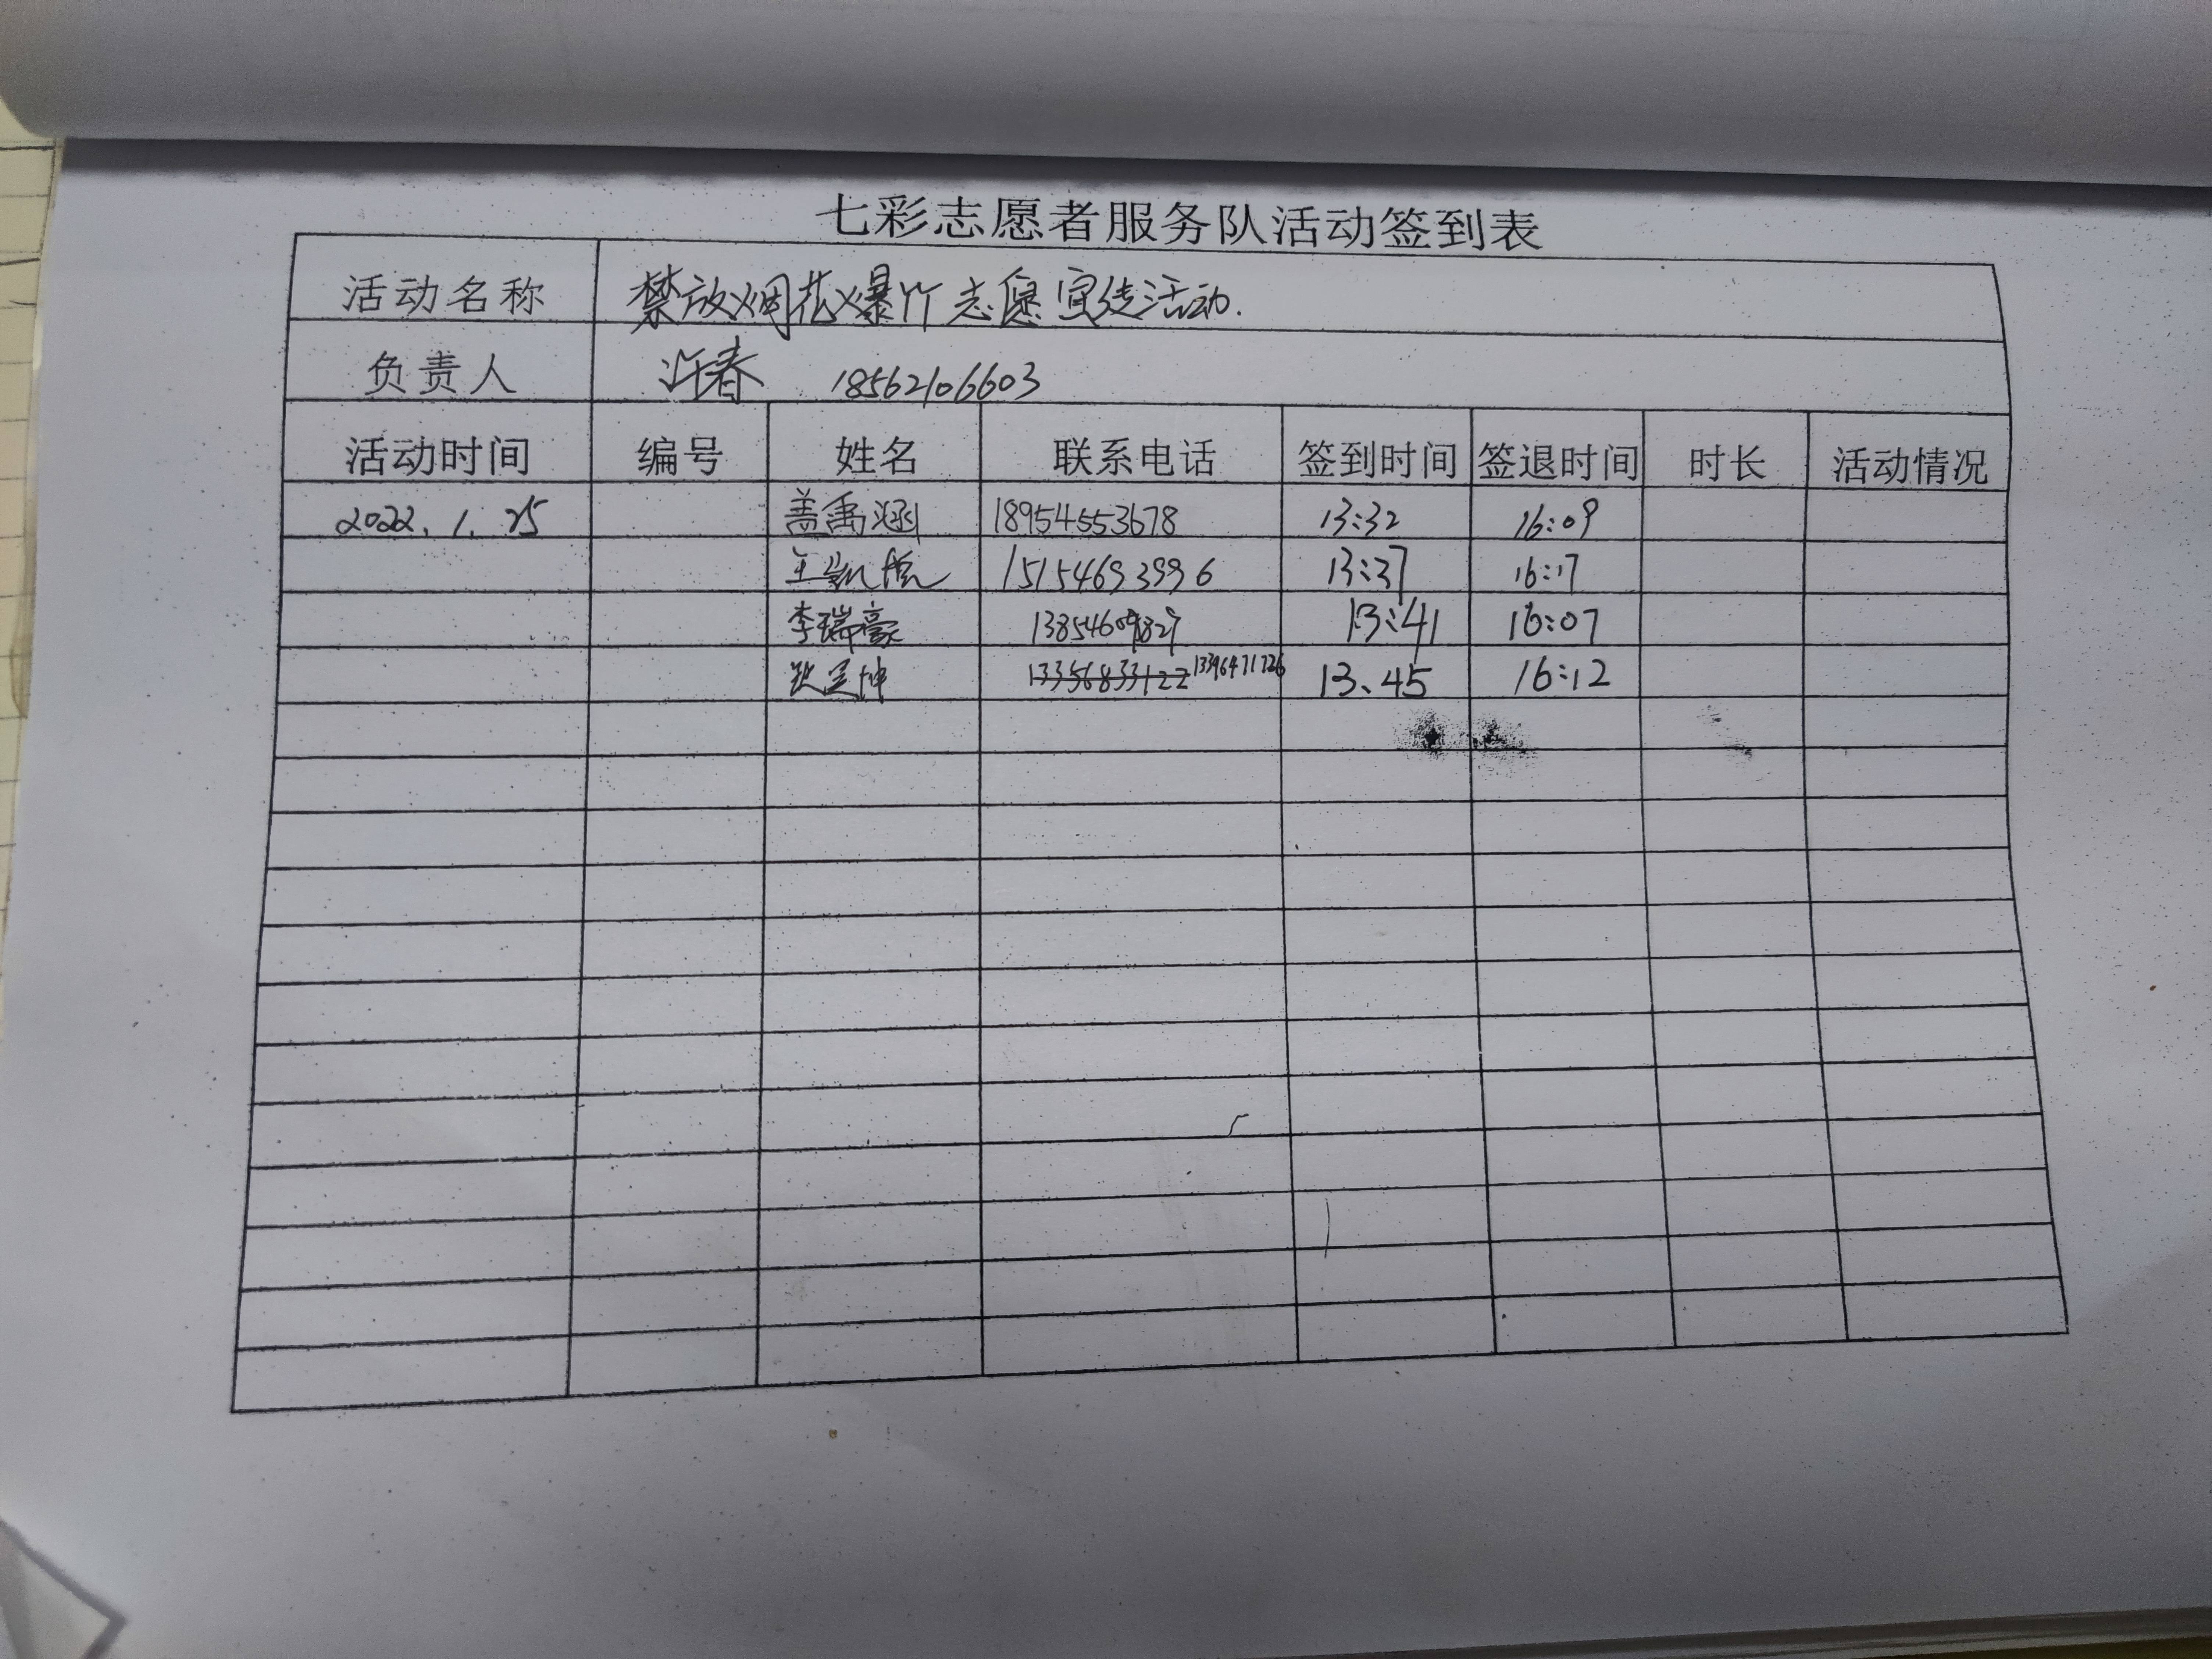 七彩志愿者服务队活动签到表
活动名称 禁放烟花爆竹志愿宣传活动.
负责人 许春 18562106603
活动时间 编号 姓名 联系电话 签到时间 签退时间 时长 活动情况
2022.1.25 盖禹涵 18954553678 13:32 16:09
15154693996 13:37 16:17
李瑞豪 13:41 16:07
13356833122 13.45 16:12